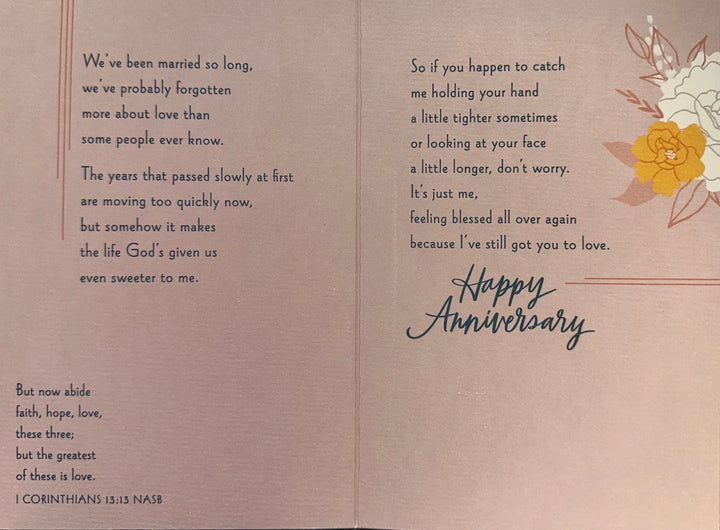 We've been married so long,
we've probably forgotten
more about love than
some people ever know.
The years that passed slowly at first
are moving too quickly now,
but somehow it makes
the life God's given us
even sweeter to me.
But now abide
faith, hope, love,
these three;
but the greatest
of these is love.
1 CORINTHIANS 13:13 NASB
So if you happen to catch
me holding your hand
a little tighter sometimes
or looking at your face
a little longer, don't worry.
It's just me,
feeling blessed all over again
because I've still got you to love.
Happy
Anniversary